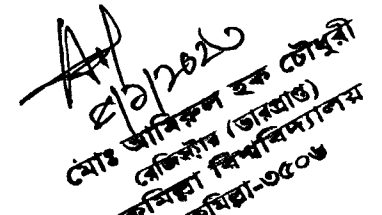 ৫/১/২০২৩
মোঃ আমিরুল হক চৌধুরী
রেজিস্ট্রার (ভারপ্রাপ্ত)
কুমিল্লা বিশ্ববিদ্যালয়
কুমিল্লা-৩৫০৬